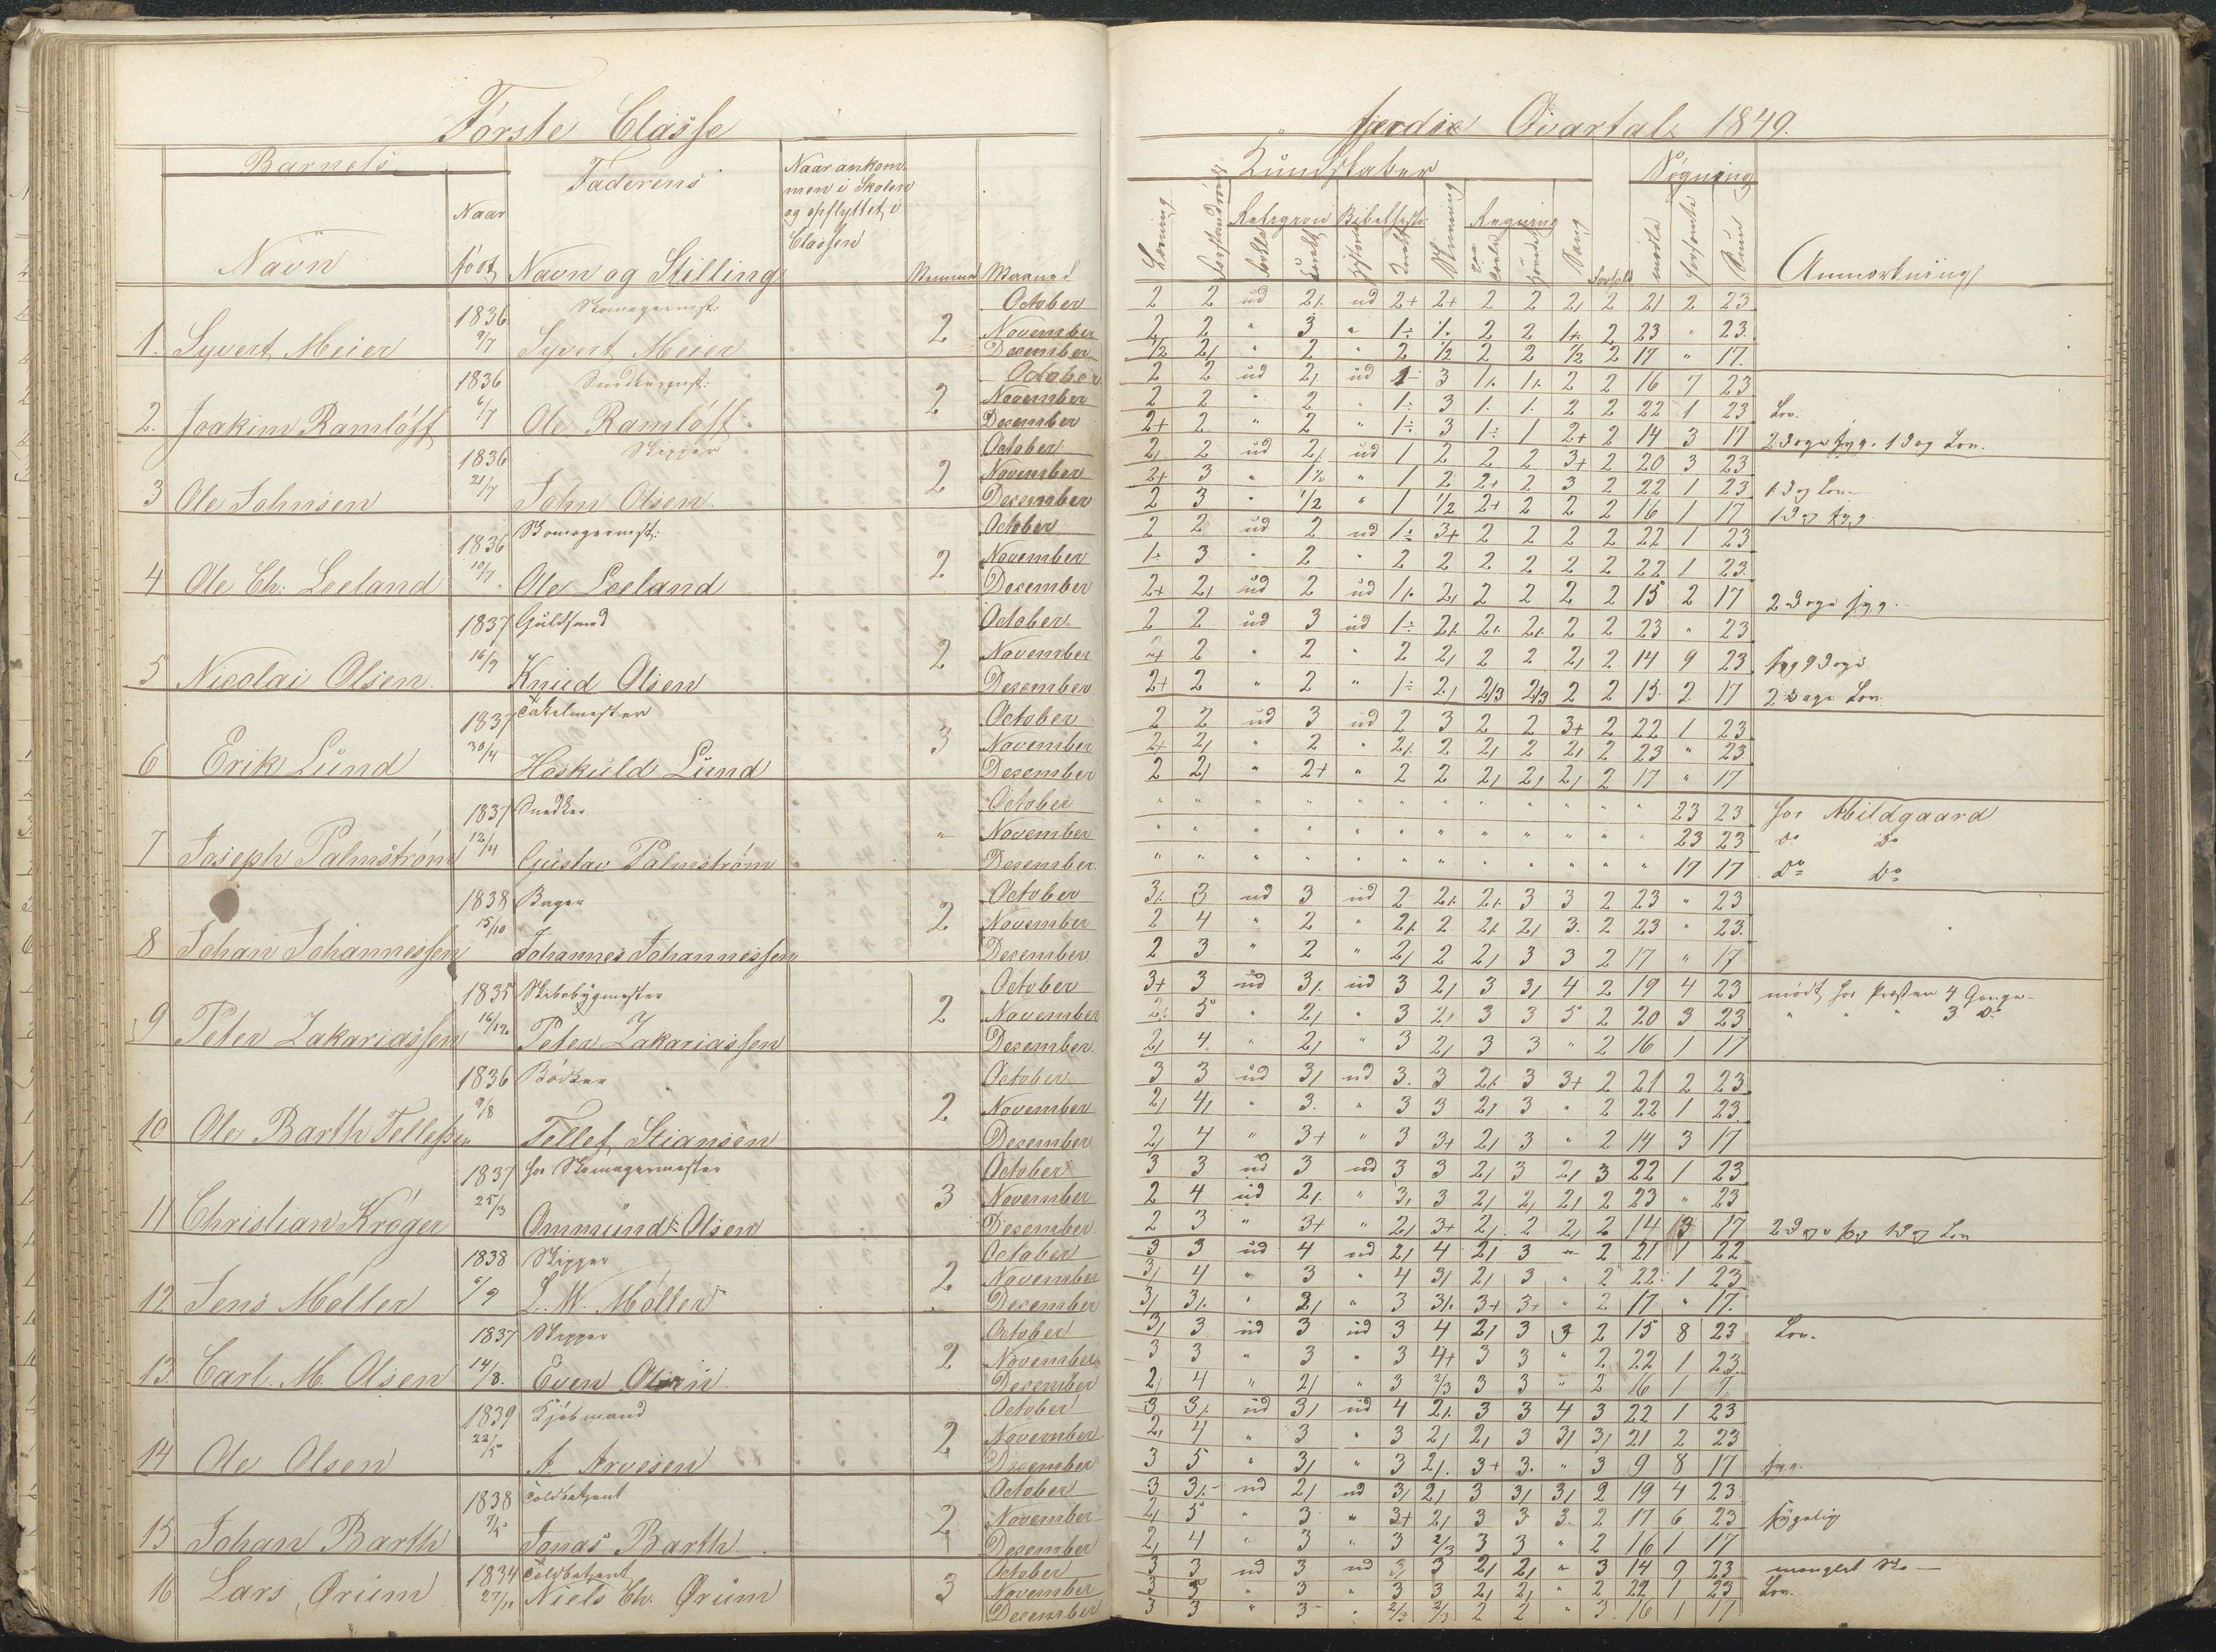 Første Classe
Barnets
Naar født
Navn
Faderens
Navn og Stilling
Naar ankom-
men i Skolen
og opflyttet i
Classen
Maaned
1. Syvert Meier 1836 9/7 Skomagermst: Syvert Meier 2 October November December
2. Joakim Ramløff 1836 6/7 Snedkermst: Ole Ramløff 2 October November December
3 Ole Johnsen 1836 21/7 Skipper John Olsen 2 October November December
4 Ole Ch: Leeland 1836 10/7 Skomagermst: Ole Leeland 2 October November December
5 Nicolai Olsen 1837 16/9 Guldsmed Knud Olsen 2 October November December
6 Erik Lund 1837 30/4 Takelmester Hoskuld Lund 3 October November December
7 Joseph Palmstrøm 1837 12/4 Snedker Gustav Palmstrøm " October November December
8 Johan Johannessen 1838 15/10 Bager Johannes Johannessen 2 October November December
9 Peter Zakariassen 1835 16/12 Skibsbygmester Peter Zakariassen 2 October November December
10 Ole Barth Tellefsen 1836 9/8 Bødker Tellef Stiansen 2 October November December
11 Christian Krøger 1837 25/3 Skomagermester Ommund Olsen 3 October November December
12 Jens Møller 1838 Skipper L. W. Møller 2 October November December
13. Carl. M. Olsen 1837 14/8. Skipper Even Olsen 2 October November December
14 Ole Olsen 1839 22/5 Kjøbmand A. Arvesen 2 October November December
15 Johan Barth 1838 Toldbetjent Jonas Barth 2 October November December
16 Lars Ørum 1834 27/11 Toldbetjent Niels Ch. Ørum 3 October November December
fjerde Qvartal 1849.
Kundskaber
Søgning
Læsning
Religion
Bibelhist:
Skrivning
Regning
Sang
Forhold
mødte
forsømte
Sum
Anmærkning
2 2 ud 2/. ud 2+ 2+ 2 2 2/ 2 21 2 23
2 2 " 3 " 1÷ 1/. 2 2 1+ 2 23 " 23.
1/2 2/ " 2 " 2 1/2 2 2 1/2 2 17 " 17.
2 2 ud 2/ ud 1÷ 3 1/. 1/. 2 2 16 7 23
2 2 " 2 " 1÷ 3 1/. 1/. 2 2 22 1 23 Lov.
2+ 2 " 2 " 1÷ 3 1÷ 1 2+ 2 14 3 17 2 Dage syg. 1 Dag Lov.
2/ 2 ud 2/ ud 1 2 2 2 3+ 2 20 3 23
2+ 3 " 1/. " 1 2 2+ 2 3 2 22 1 23 1 Dag Lov.
2 3 " 1/2 " 1 1/2 2+ 2 2 2 16 1 17 1 Dag syg.
2 2 ud 2 ud 1÷ 3+ 2 2 2 2 22 1 23
1÷ 3 " 2 " 2 2 2 2 2 2 22 1 23.
2+ 2/ ud 2 ud 1/. 2/ 2 2 2 2 15 2 17 2 Dage syg.
2 2 ud 3 ud 1÷ 2/. 2/. 2/. 2 2 23 " 23
2+ 2 " 2 " 2 2/ 2 2 2/ 2 14 9 23 syg 9 Dage
2+ 2 " 2 " 1÷ 2/ 2/3 2/3 2 2 15. 2. 17 2 Dage Lov.
2 2 ud 3 ud 2 3 2 2 3+ 2 22 1 23
2+ 2/ " 2 " 2/. 2 2/ 2 2/ 2 23 " 23
2 2/ " 2+ " 2 2 2/ 2/ 2/ 2 17 " 17
" " " " " " " " " " " " 23 23 hos Mildgaard
" " " " " " " " " " " " 23 23 do do
" " " " " " " " " " " " 17 17 do do
3/. 3 ud 3 ud 2 2/. 2/. 3 3 2 23 " 23
2 4 " 2 " 2/. 2 2/. 2/ 3. 2 23 " 23.
2 3 " 2 " 2/ 2 2/ 3 3 2 17 " 17
3+ 3 ud 3/. ud 3 2/ 3 3/ 4 2 19 4 23 mødt hos Præsten 4 Gange
2/. 5 " 2/ " 3 2/ 3 3 5 2 20 3 23 " " " 3 do
2/ 4 " 2/ " 3 2/ 3 3 " 2 16 1 17
3 3 ud 3/ ud 3. 3 2/. 3 3+ 2 21 2 23
2/ 4/ " 3. " 3 3 2/ 3 " 2 22 1 23
2/ 4 " 3+ " 3 3+ 2/ 3 " 2 14 3 17
3 3 ud 3 ud 3 3 2/ 3 2/ 3 22 1 23
2 4 ud 2/. " 3/ 3 2/ 2/ 2/ 2 23 " 23
2 3 " 3+ " 2/ 3+ 2/. 2 2/ 2 14 3 17 2 Dage syg 1 Dag Lov
3 3 ud 4 ud 2/ 4 2/ 3 " 2 21 1 22
3/ 4 " 3 " 4 3/ 2/ 3 " 2 22 1 23
3/ 3/. " 2/ " 3 3/. 3+ 3+ " 2 17 " 17.
3/ 3 ud 3 ud 3 4 2/ 3 3 2 15 8 23 Lov.
3 3 " 3 " 3 4+ 3 3 " 2 22 1 23
2/ 4 " 2/ " 3 2/3 3 3 " 2 16 1 7
3 3/. ud 3/ ud 4 2/. 3 3 4 3 22 1 23
2/ 4 " 3 " 3 2/ 2/ 3 3/ 3/ 21 2 23
3 5 " 3/ " 3 2/. 3+ 3. " 3 9 8 17 syg.
3 3/. ud 2/ ud 3/ 2/ 3 3/ 3/ 2 19 4 23
2/ 5 " 3 " 3+ 2/ 3 3 3. 2 17 6 23 sygelig
2/ 4 " 3 " 3 2/3 3 3 " 2 16 1 17
3 3 ud 3 ud 3/ 3 2/ 2/ " 3 14 9 23 manglet Sko
3 3 " 3 " 3 3 2/ 2/ " 2 22 1 23 Lov.
3 3 " 3 " 2/3 2/3 2 2 " 3. 16 1 17